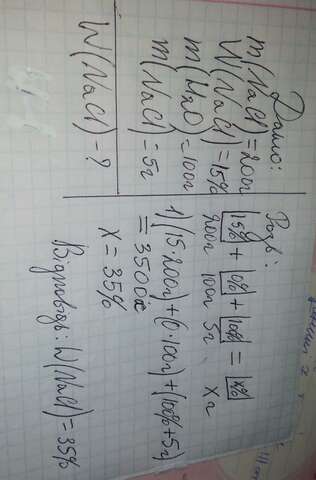 Дано:
m(NaCl)=200г
W(NaCl)=15%
m(H2O)=100г
m(NaCl)=5г
W(NaCl)-?
Розв:
15% + 0% + 100% = x%
200г 100г 5г x г
1) (15·200г)+(0·100г)+(100%+5г)
= 3500x
x = 35%
Відповідь: W(NaCl)=35%